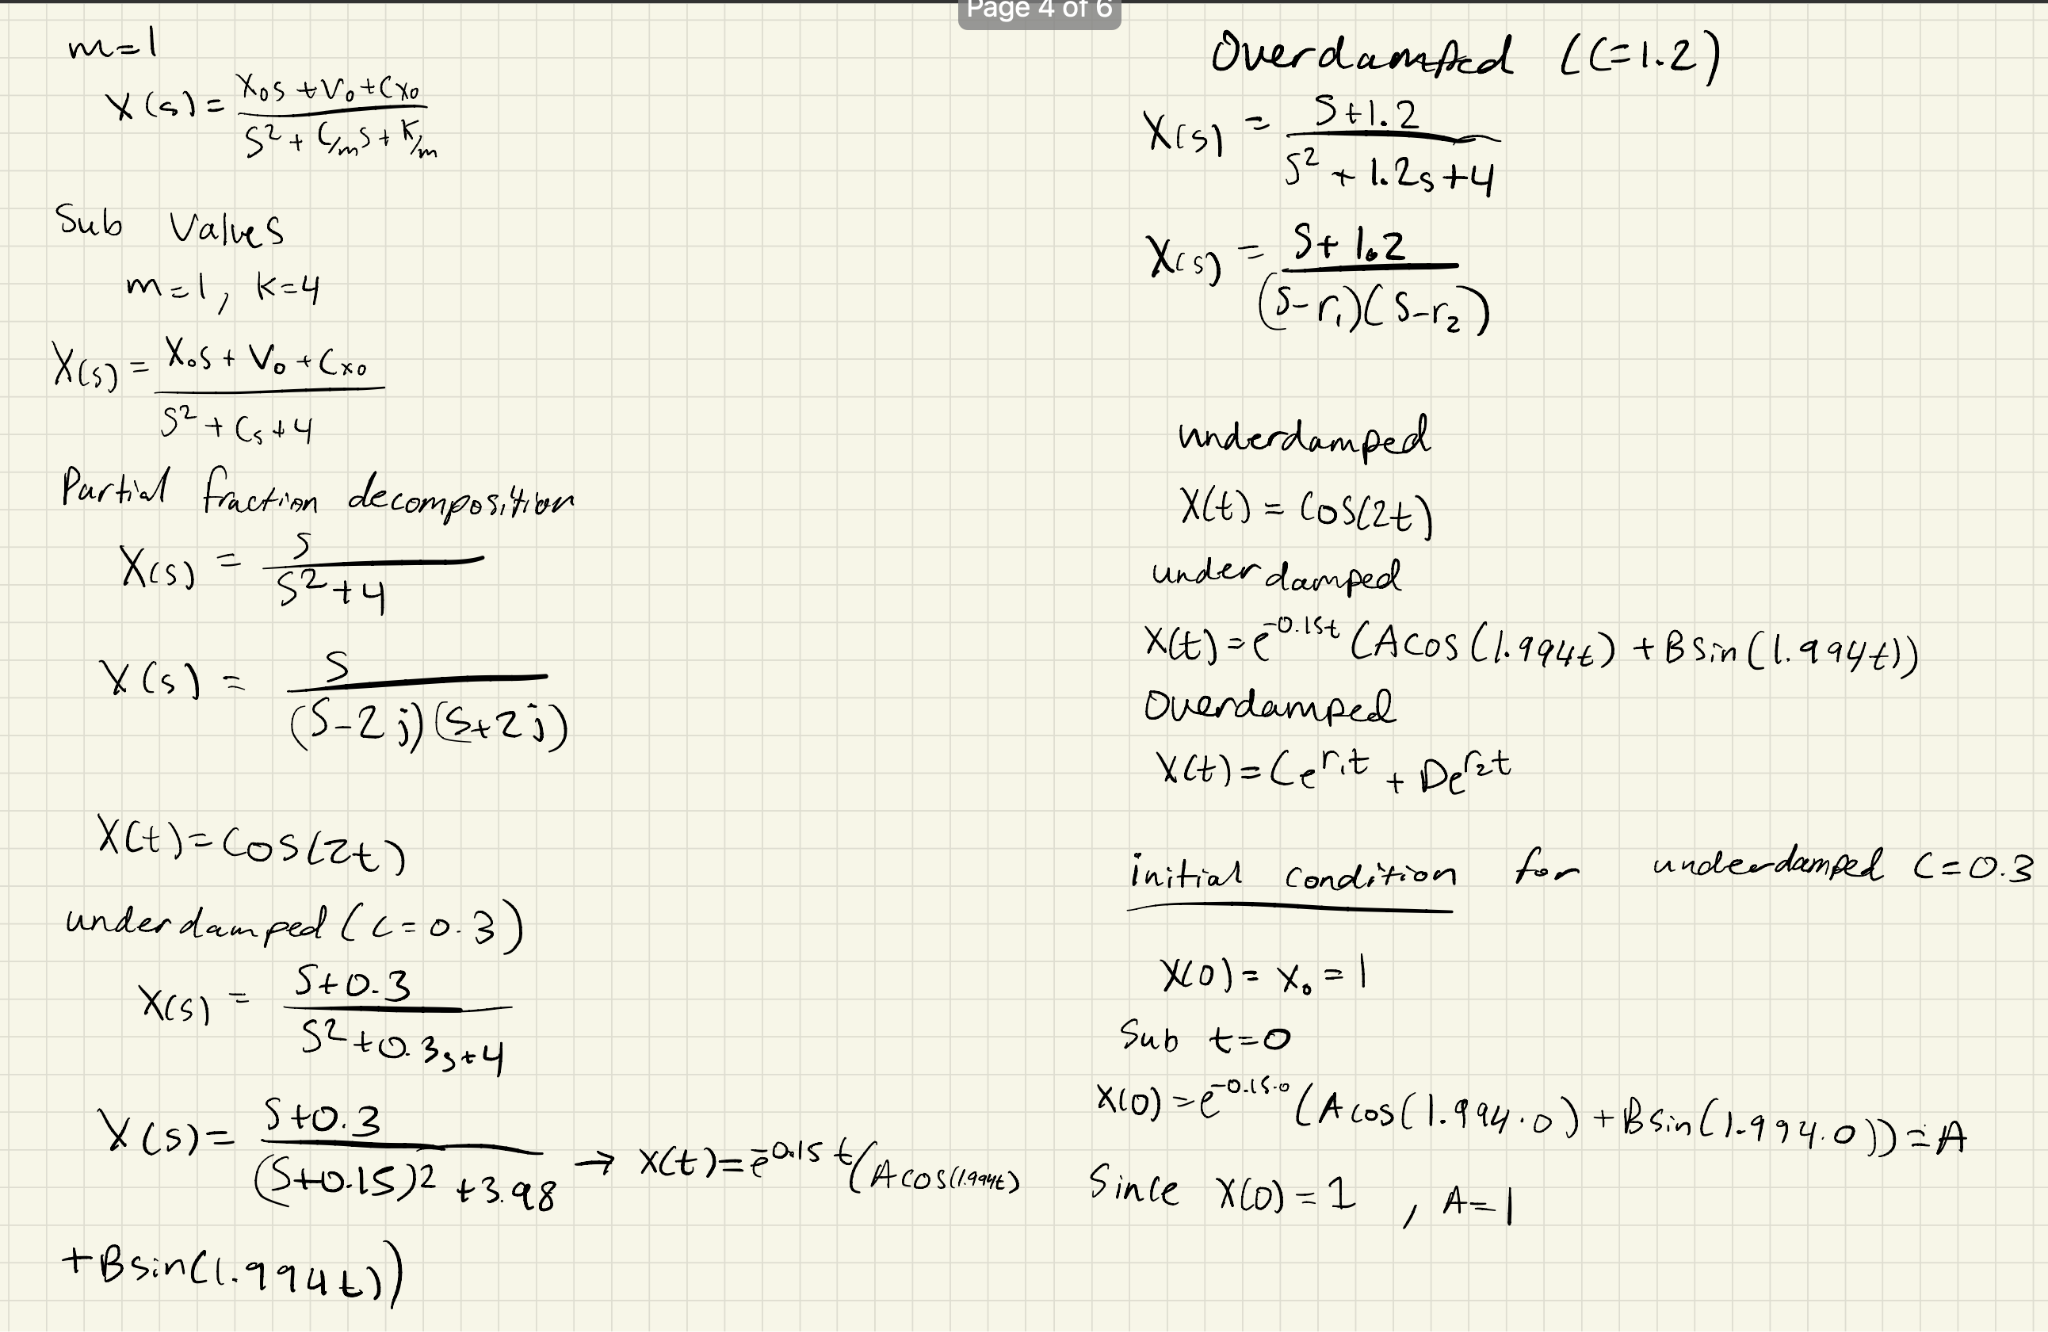 Page 4 of 6
m=1
X(s) = (x₀s + v₀ + cx₀) / (s² + c/m s + k/m)
Sub Values
m=1, k=4
X(s) = (x₀s + v₀ + cx₀) / (s² + cs + 4)
Partial fraction decomposition
X(s) = s / (s² + 4)
X(s) = s / ((s-2j)(s+2j))
X(t) = cos(2t)
underdamped (c=0.3)
X(s) = (s+0.3) / (s² + 0.3s + 4)
X(s) = (s+0.3) / ((s+0.15)² + 3.98) → x(t) = e^-0.15t (A cos(1.994t)
+ B sin(1.994t))
Overdamped (c=1.2)
X(s) = (s+1.2) / (s² + 1.2s + 4)
X(s) = (s+1.2) / ((s-r₁)(s-r₂))
underdamped
X(t) = cos(2t)
underdamped
X(t) = e^-0.15t (A cos(1.994t) + B sin(1.994t))
Overdamped
X(t) = Ce^r₁t + De^r₂t
initial condition for underdamped c=0.3
X(0) = x₀ = 1
Sub t=0
X(0) = e^-0.15·0 (A cos(1.994·0) + B sin(1.994·0)) = A
Since X(0) = 1, A=1